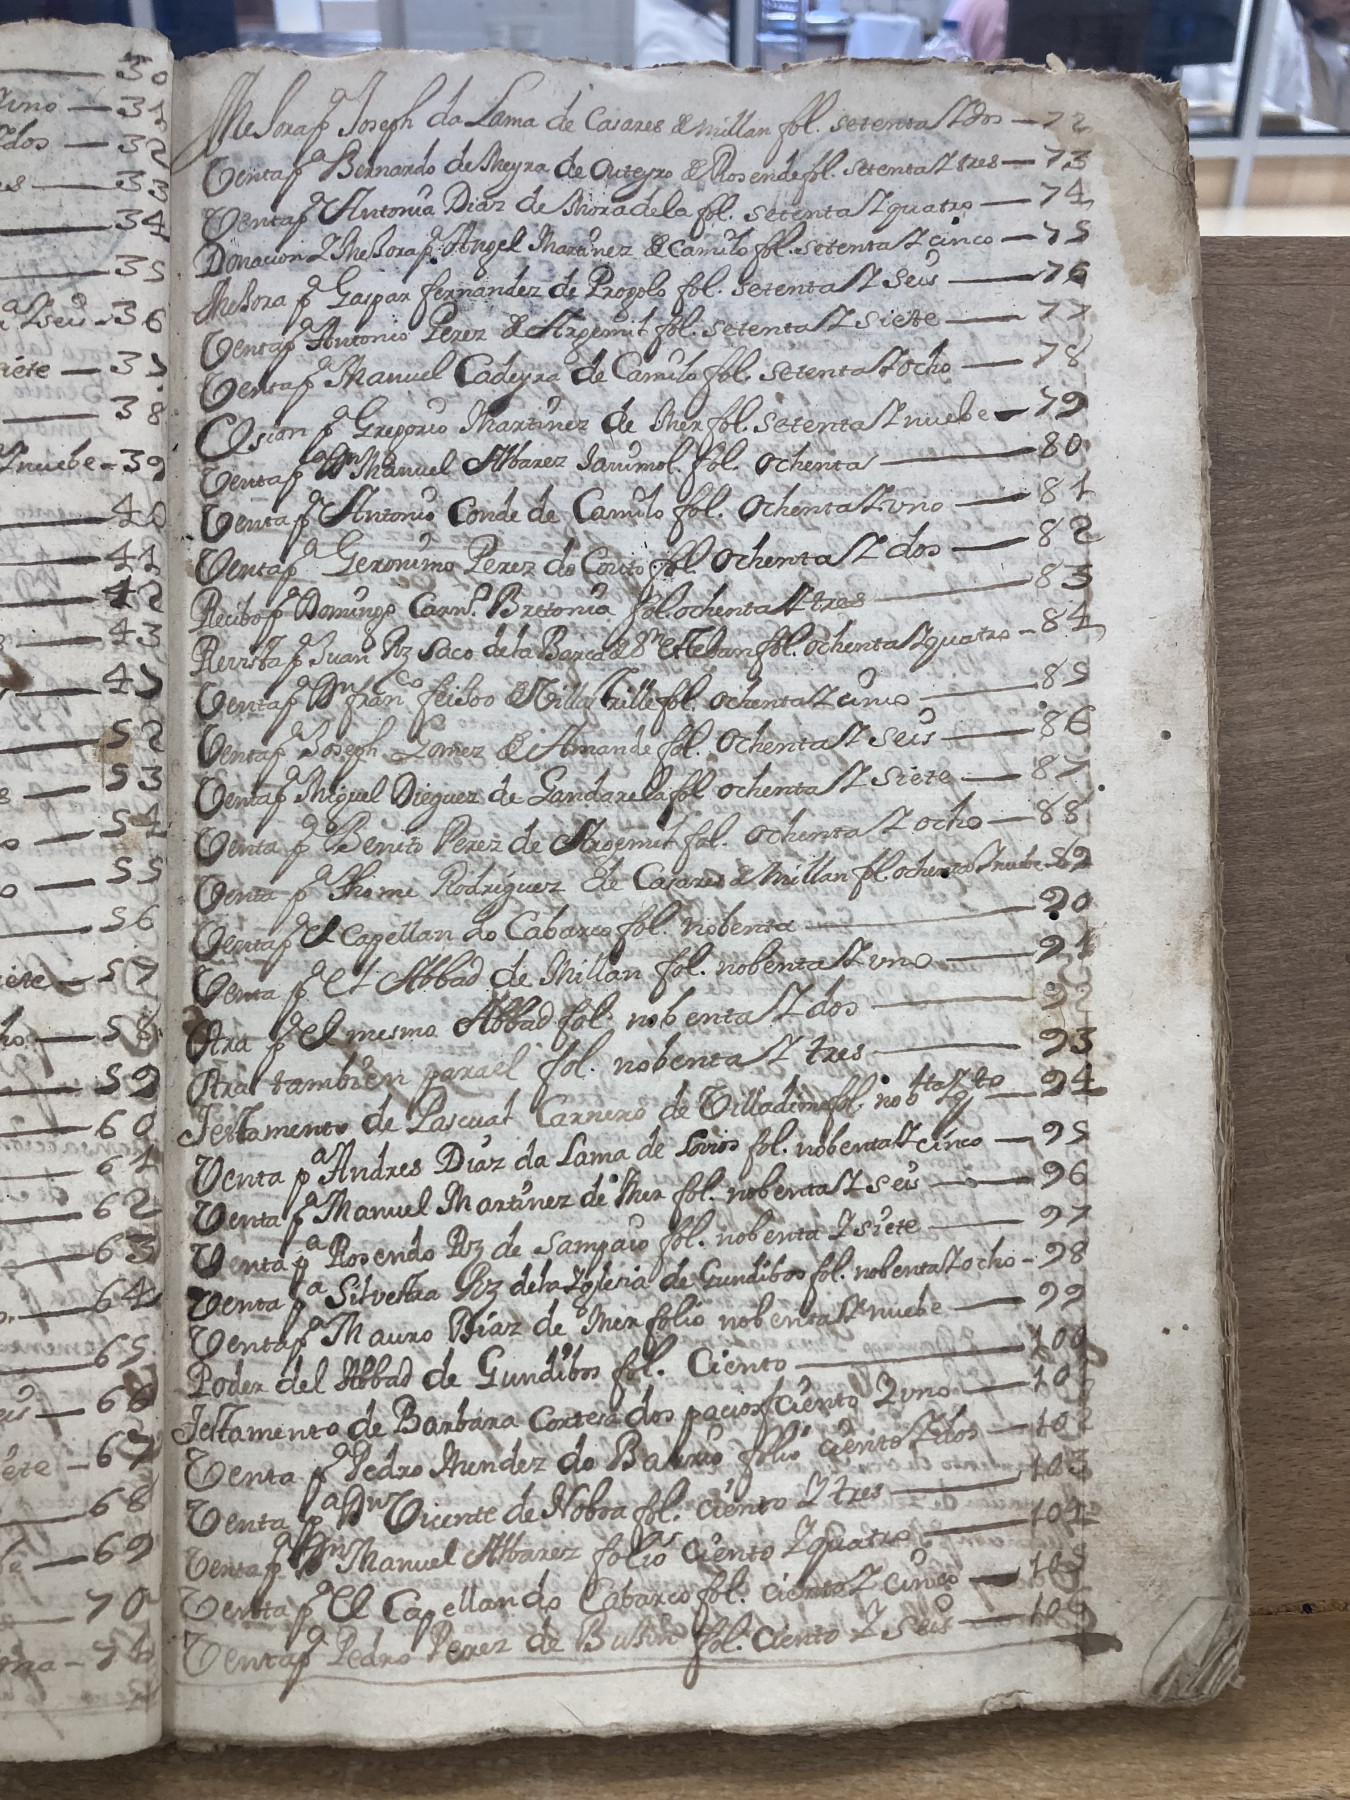 30
uno — 31
dos — 32
es — 33
34
35
seis - 36
siete — 37
38
nuebe - 39
40
41
42
43
47
52
53
54
55
56
siete — 57
58
59
60
61
62
63
64
65
66
67
68
69
70
71
Mejora pª Joseph da Lama de Casares de Millan fol. setenta y dos — 72
Venta pª Bernardo de Neyra de Outeyro de Rosende fol. setenta y tres — 73
Venta pª Antonia Diaz de Moradela fol. setenta y quatro — 74
Donacion y Mejora pª Angel Martinez de Camilo fol. setenta y cinco — 75
Mejora pª Gaspar fernandez de Progolo fol. setenta y seis — 76
Venta pª Antonio Perez de Argemil fol. setenta y siete — 77
Venta pª Manuel Cadeyra de Camilo fol. setenta y ocho — 78
Cesion pª Gregorio Martinez de Mer fol. setenta y nuebe — 79
Venta pª Dn Manuel Albarez fol. ochenta — 80
Venta pª Antonio Conde de Camilo fol. ochenta y uno — 81
Venta pª Geronimo Perez do Couto fol. ochenta y dos — 82
Recibo pª Domingo Carnº. Bretonia fol. ochenta y tres — 83
Revista pª Juan Rz Saco de la Barca de Sn Esteban fol. ochenta y quatro - 84
Venta pª Dn franco feijoo de Villa Trille fol. ochenta y cinco — 85
Venta pª Joseph Lomez de Amande fol. ochenta y seis — 86
Venta pª Miguel Dieguez de Gandarela fol. ochenta y siete — 87
Venta pª Benito Perez de Argemil fol. ochenta y ocho — 88
Venta pª Thome Rodriguez de Casares de Millan fol. ochenta y nuebe 89
Venta pª el Capellan do Cabarco fol. nobenta — 90
Venta pª el Abbad de Millan fol. nobenta y uno — 91
Otra pª el mesmo Abbad fol. nobenta y dos — 92
Otra tambien para el fol. nobenta y tres — 93
Testamento de Pascual Carnero de Villadime fol. nobta y qto — 94
Venta pª Andres Diaz da Lama de Lovios fol. nobenta y cinco — 95
Venta pª Manuel Martinez de Mer fol. nobenta y seis — 96
Venta pª Rosendo Rz de Sampaio fol. nobenta y siete — 97
Venta pª Silvestra Rz de la Yglesia de Gundibos fol. nobenta y ocho - 98
Venta pª Mauro Diaz de Mer folio nobenta y nuebe — 99
Poder del Abbad de Gundibos fol. Ciento — 100
Testamento de Barbara Cortesa dos pacios ciento y uno — 101
Venta pª Pedro Mendez do Barrio folio ciento y dos — 102
Venta pª Dn Vicente de Noboa fol. ciento y tres — 103
Venta pª Dn Manuel Albarez folio ciento y quatro — 104
Venta pª el Capellan do Cabarco fol. ciento y cinco — 105
Venta pª Pedro Perez de fol. ciento y seis — 106